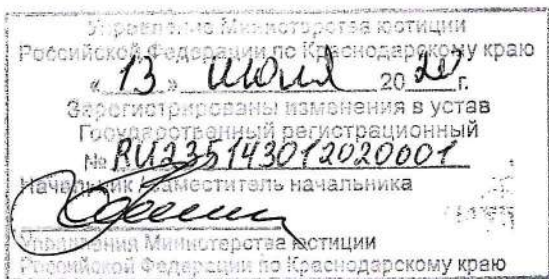 Управление Министерства юстиции
Российской Федерации по Краснодарскому краю
« 13 » июля 2020 г.
Зарегистрированы изменения в устав
Государственный регистрационный
№ RU235143012020001
Начальник /заместитель начальника
Управления Министерства юстиции
Российской Федерации по Краснодарскому краю